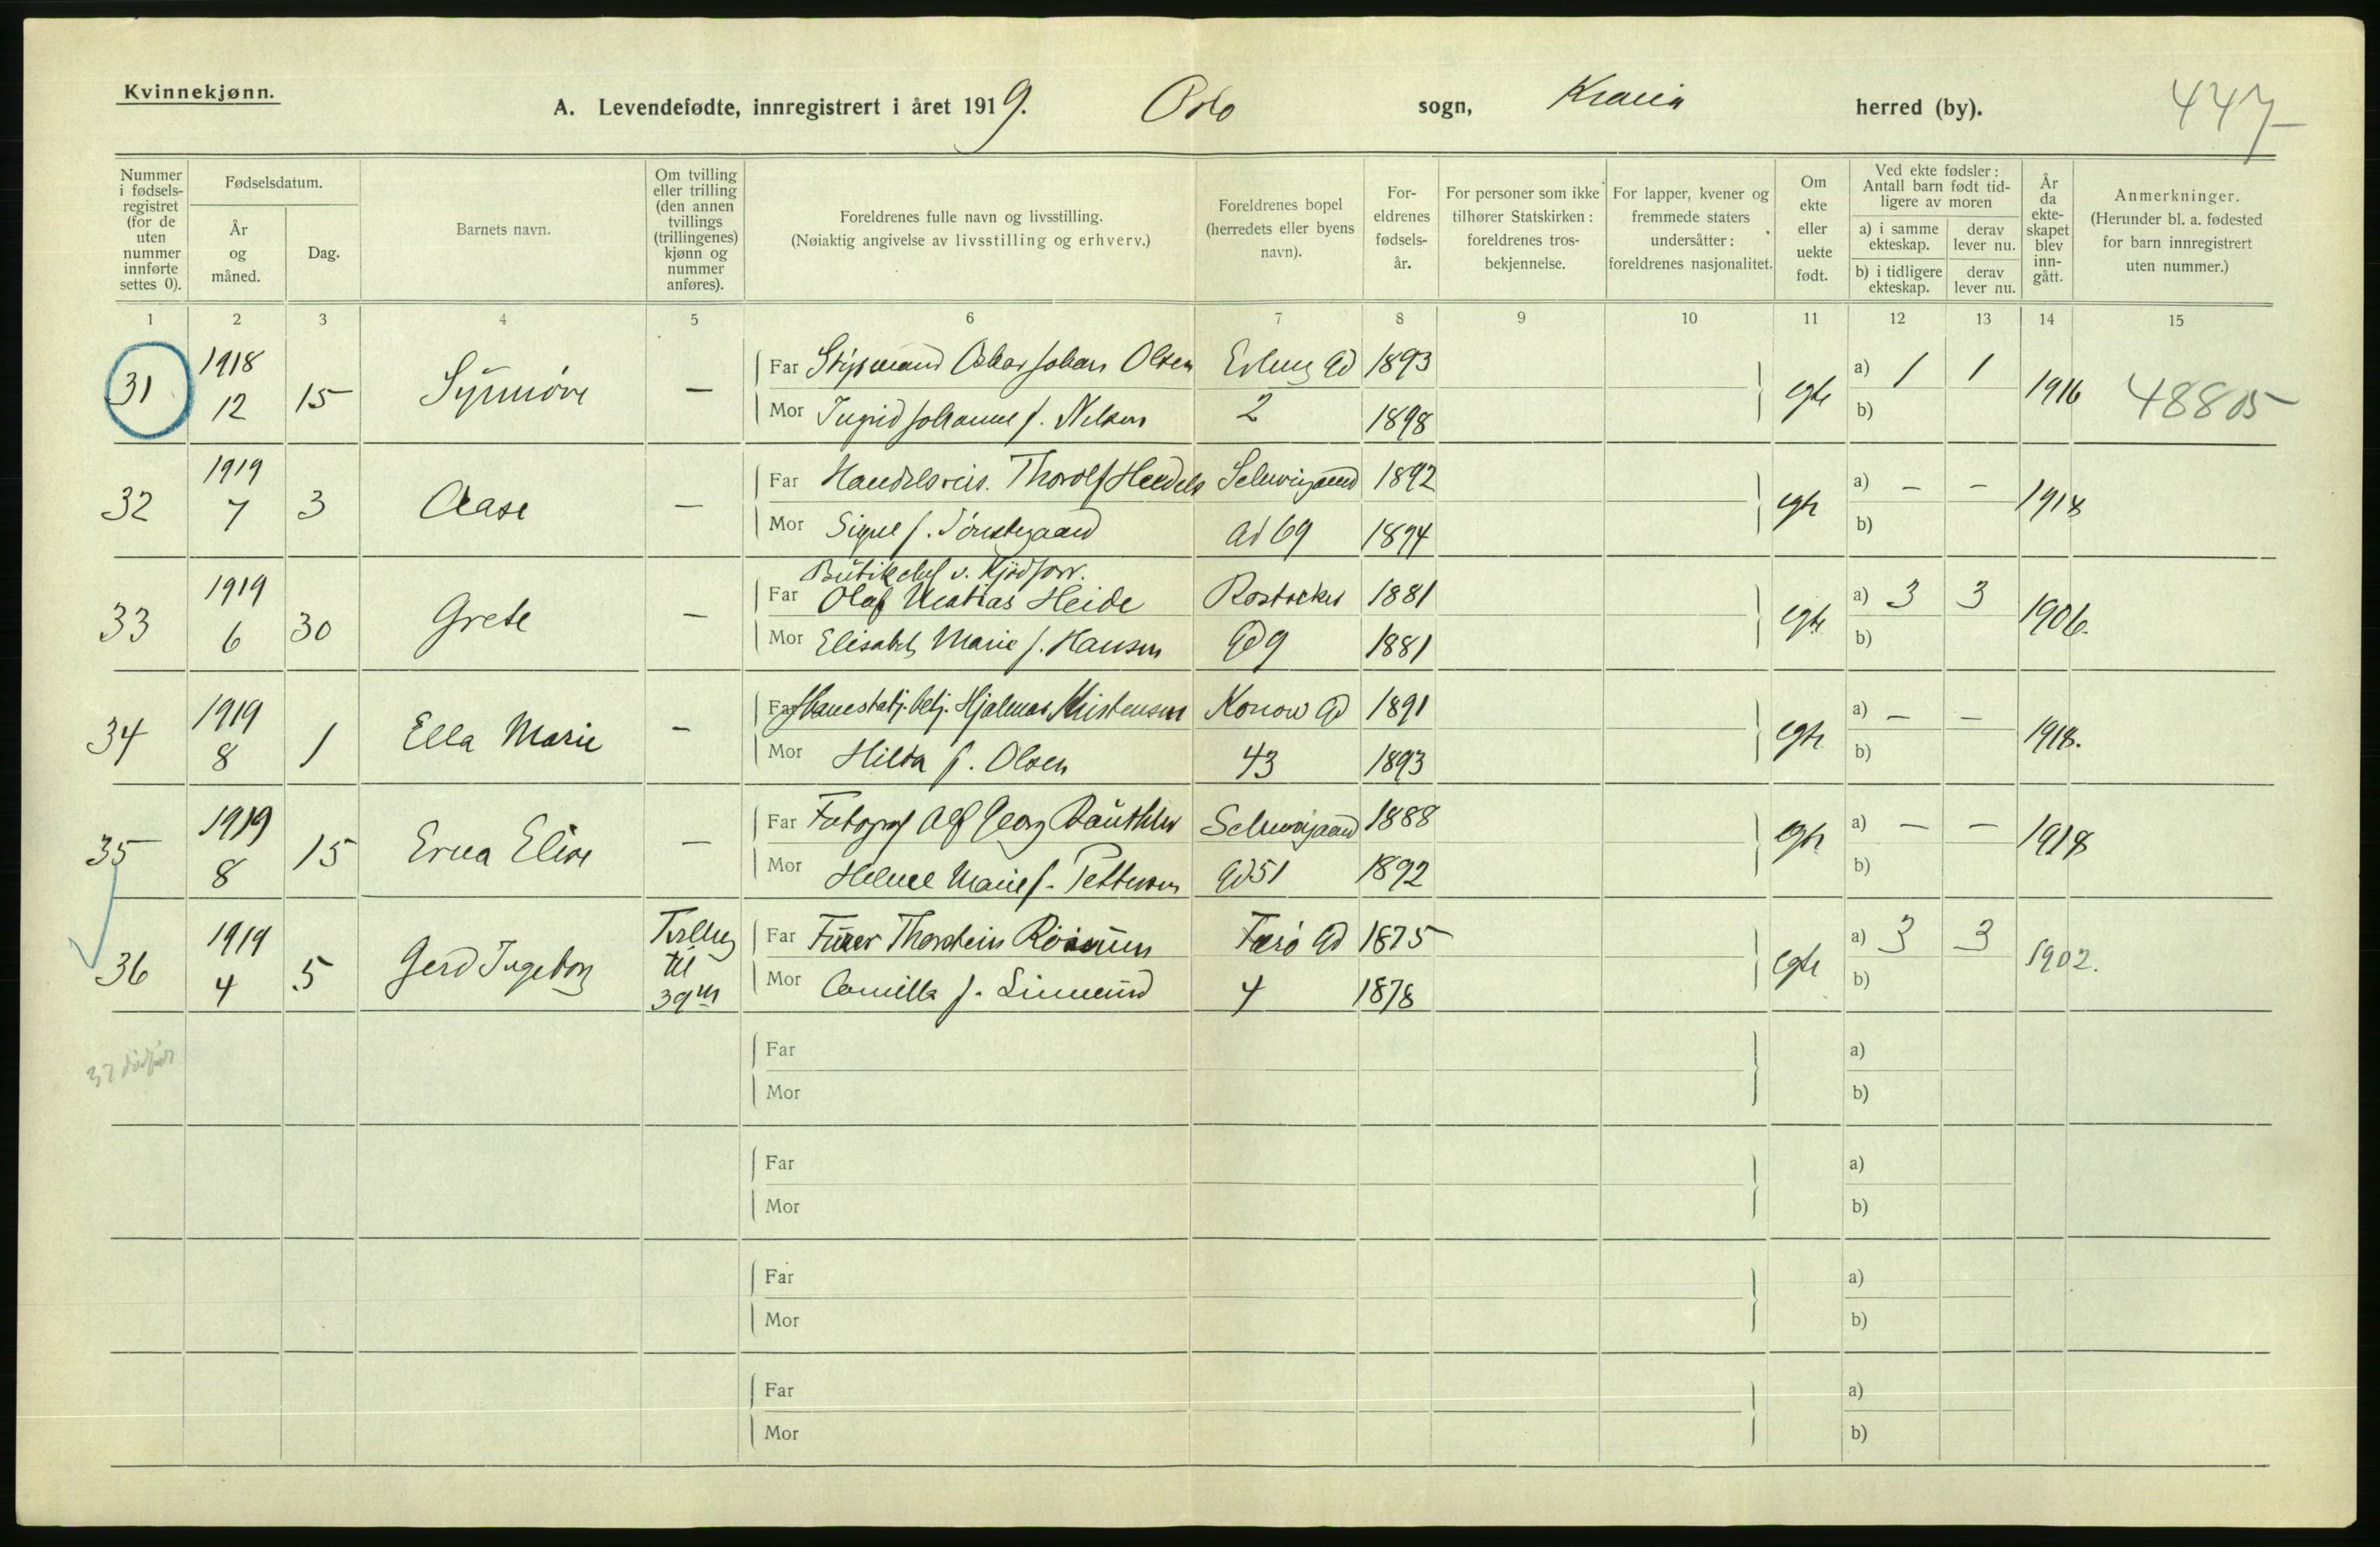 Kvinnekjønn.
A. Levendefødte, innregistrert i året 1919. Oslo sogn, Krania herred (by). 447
Nummer i fødsels-registret (for de uten nummer innførte settes 0).
Fødselsdatum.
År og måned.
Dag.
Barnets navn.
Om tvilling eller trilling (den annen tvillings (trillingenes) kjønn og nummer anføres).
Foreldrenes fulle navn og livsstilling.
(Nøiaktig angivelse av livsstilling og erhverv.)
Foreldrenes bopel (herredets eller byens navn).
For-eldrenes fødsels-år.
For personer som ikke tilhører Statskirken: foreldrenes tros-bekjennelse.
For lapper, kvener og fremmede staters undersåtter: foreldrenes nasjonalitet.
Om ekte eller uekte født.
Ved ekte fødsler: Antall barn født tid-ligere av moren
a) i samme ekteskap.
derav lever nu.
b) i tidligere ekteskap.
derav lever nu.
År da ekte-skapet blev inn-gått.
Anmerkninger.
(Herunder bl. a. fødested for barn innregistrert uten nummer.)
1 2 3 4 5 6 7 8 9 10 11 12 13 14 15
31 1918 12 15 Synnøve — Far Styrmand Oskar Johan Olsen Erling Gd 1893 egte a) 1 1 1916 48805
Mor Ingrid Johanne f. Nilsen 2 1898 b)
32 1919 7 3 Aase — Far Handelsreis. Thorolf Schweigaard 1892 egte a) — — 1918
Mor Signe f. Gd 69 1894 b)
Butikchef v. Kjødforr.
33 1919 6 30 Grete — Far Olaf Matias Heide Rostocker 1881 egte a) 3 3 1906.
Mor Elisabet Marie f. Hansen Gd 9 1881 b)
34 1919 8 1 Ella Marie — Far betj. Hjalmar Kristensen Konow Gd 1891 egte a) — — 1918.
Mor Hilda f. Olsen 43 1893 b)
35 1919 8 15 Erna Elise — Far Fotograf Alf Georg Schweigaard 1888 egte a) — — 1918
Mor Helene Marie f. Pettersen Gd 51 1892 b)
36 1919 4 5 Gerd Ingeborg Tvilling til 39 m Far Thorstein Færø Gd 1875 egte a) 3 3 1902.
Mor Camilla f. 4 1878 b)
37
Far a)
Mor b)
Far a)
Mor b)
Far a)
Mor b)
Far a)
Mor b)